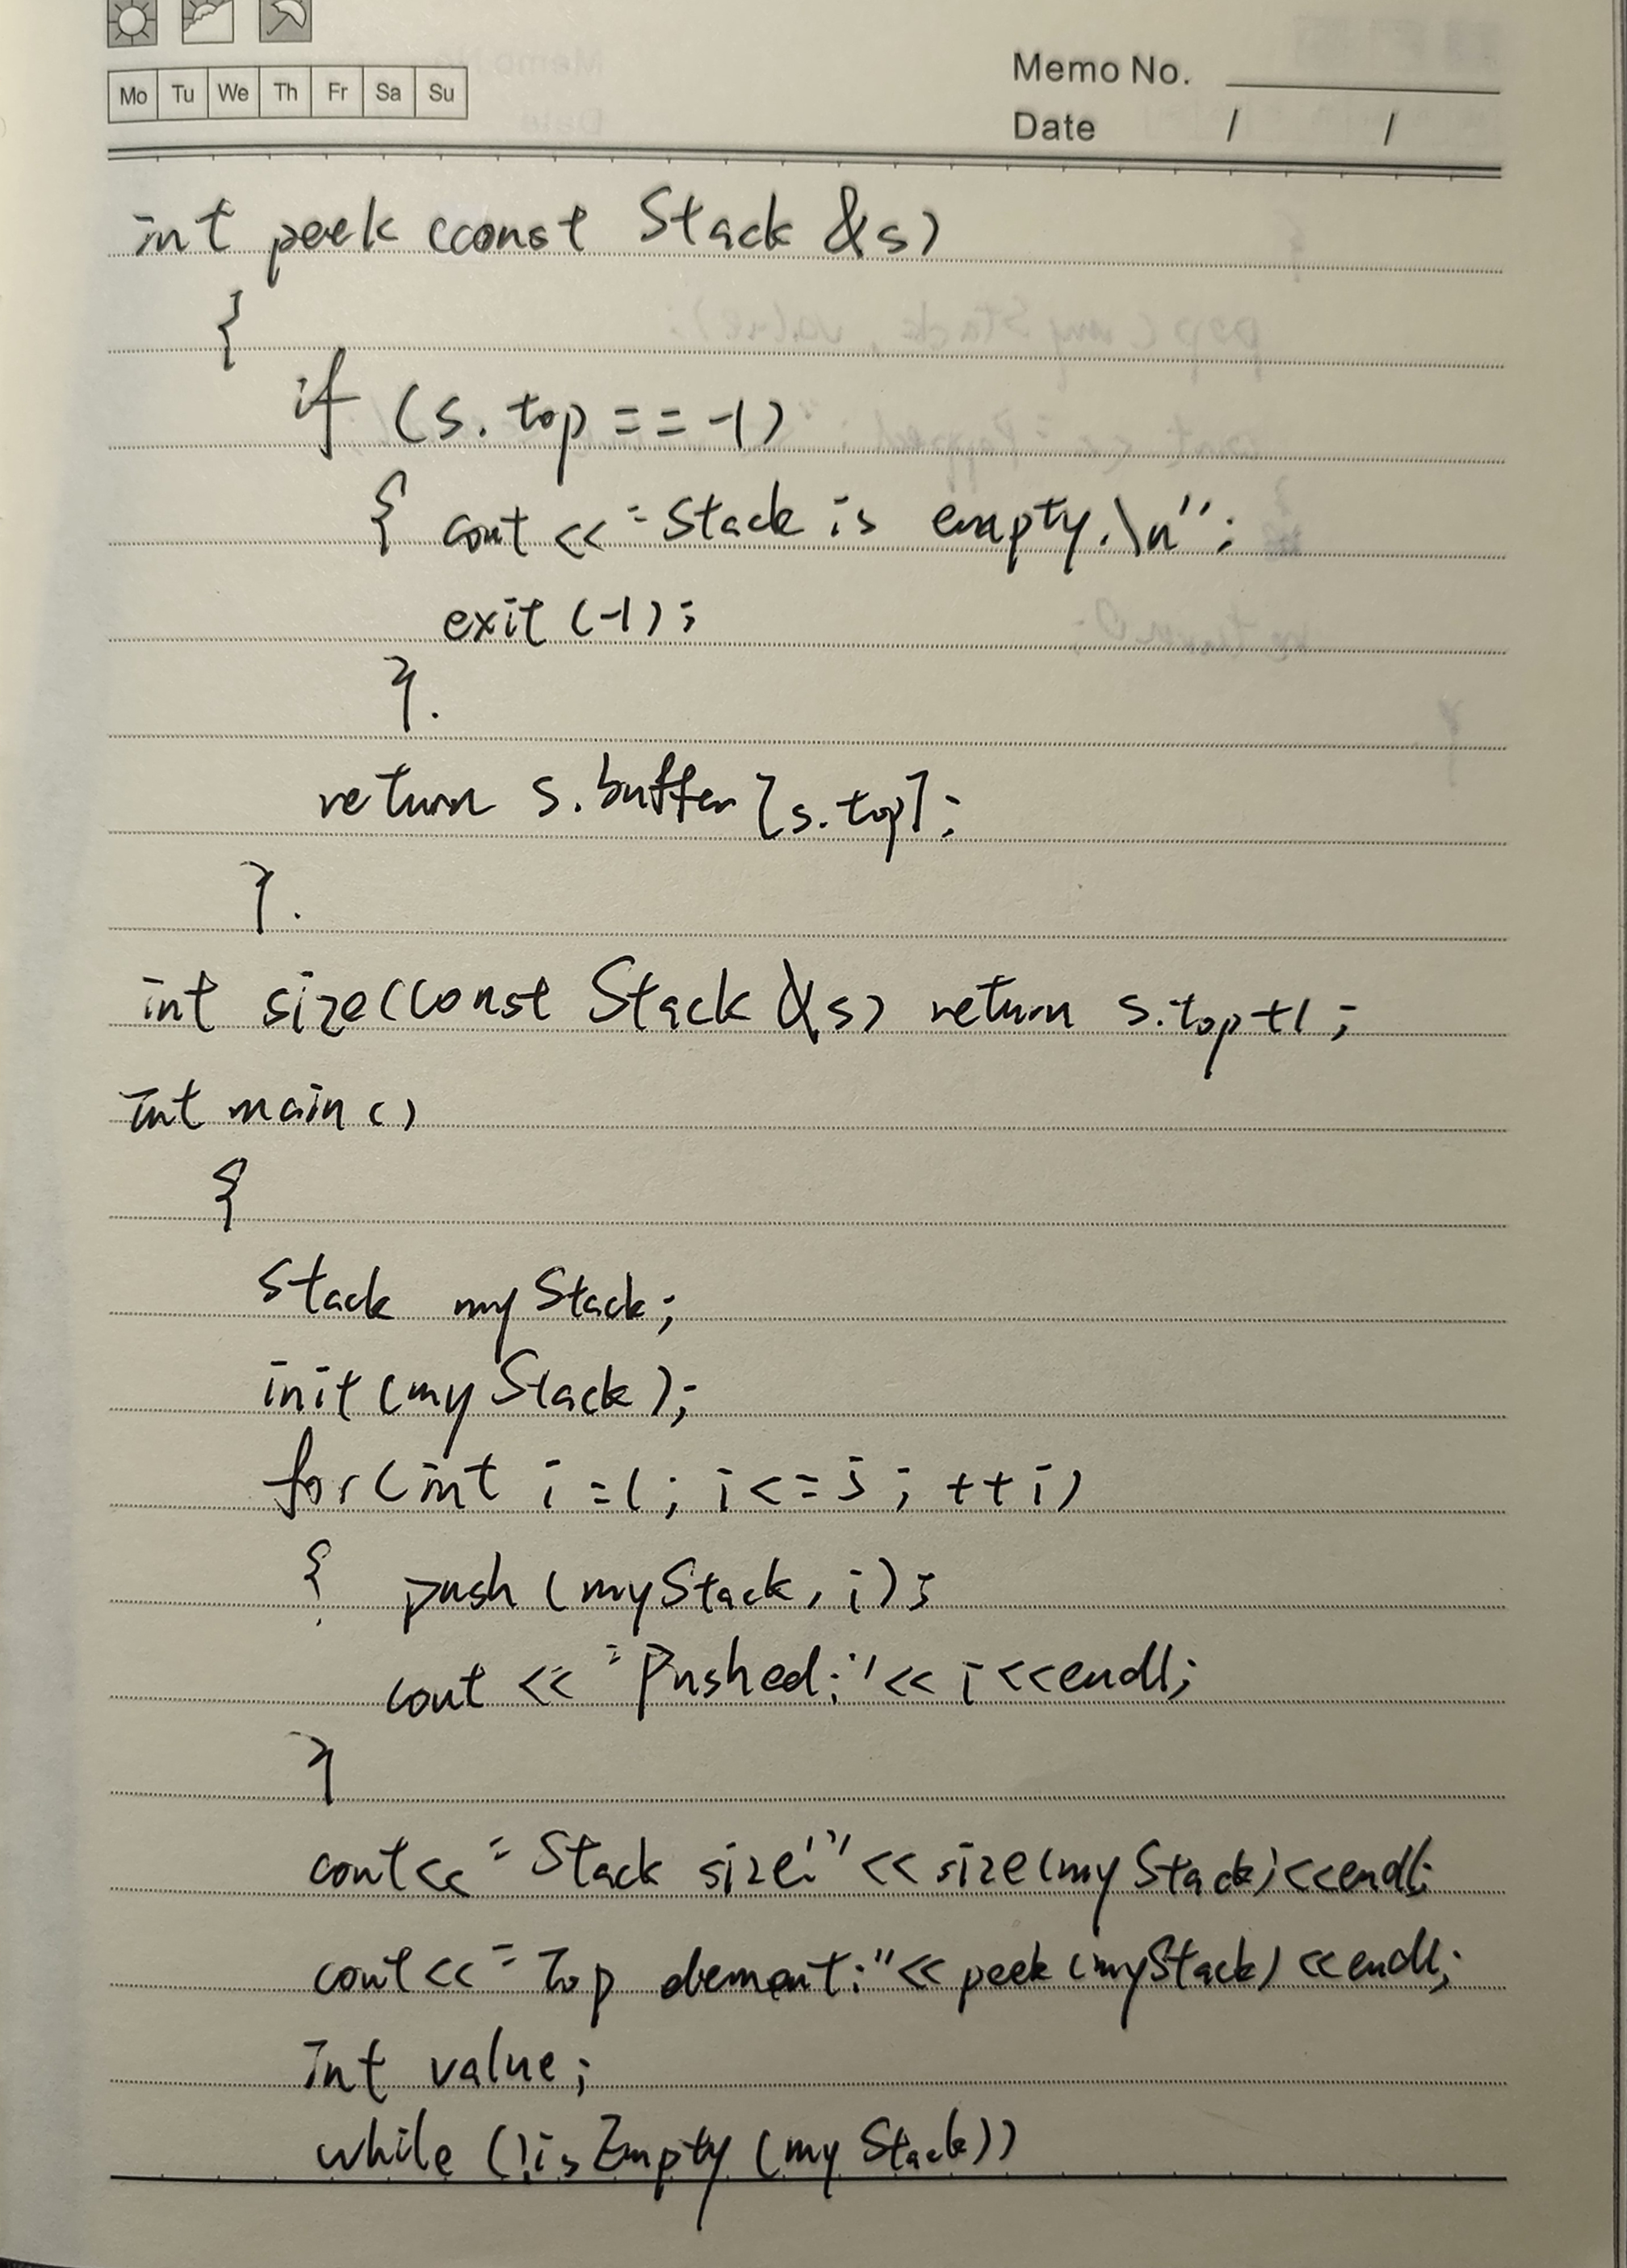 Mo Tu We Th Fr Sa Su
Memo No.
Date / /
int peek (const Stack &s)
{
if (s.top == -1)
{ cout << "Stack is empty.\n";
exit (-1);
}.
return s.buffer[s.top];
}.
int size(const Stack &s) return s.top+1;
int main()
{
Stack myStack;
init(myStack);
for(int i=1; i<=5; ++i)
{ push (myStack, i);
cout << "Pushed:"<< i<<endl;
}
cout<< "Stack size:"<<size(myStack)<<endl;
cout<< "Top element:"<< peek(myStack)<<endl;
int value;
while (!isEmpty(myStack))